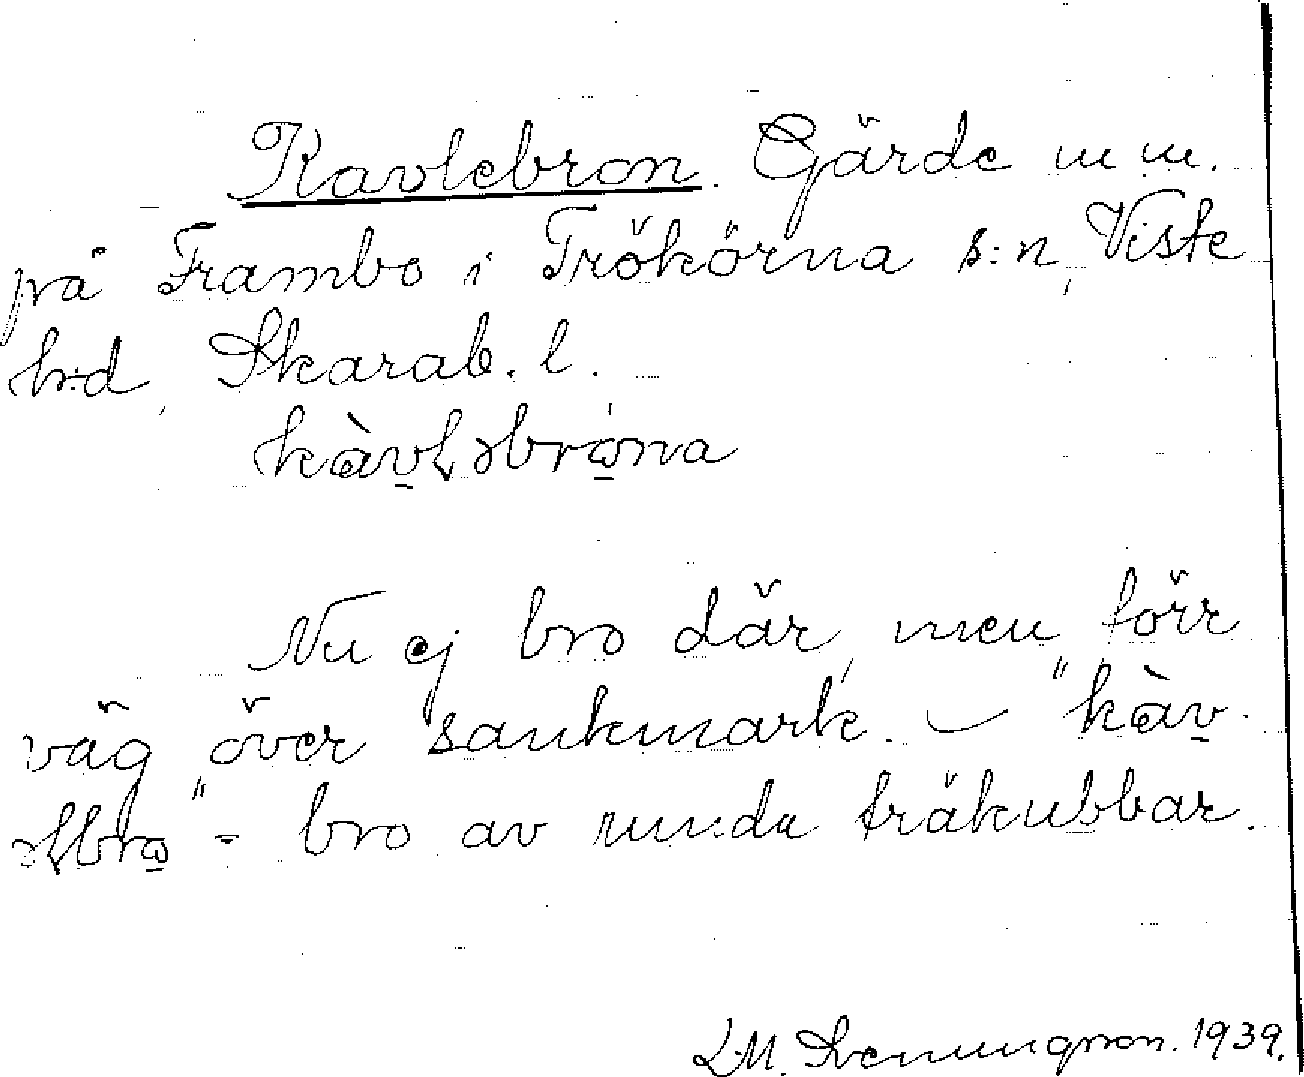 Kavlebron. Gärde m m.
på Frambo i Trökörna s:n, Viste
hd, Skarab. l.
kàvləbrona
Nu ej bro där, men förr
väg över sankmark. – "kàv-
əlbro" = bro av runda träkubbar.
1939.